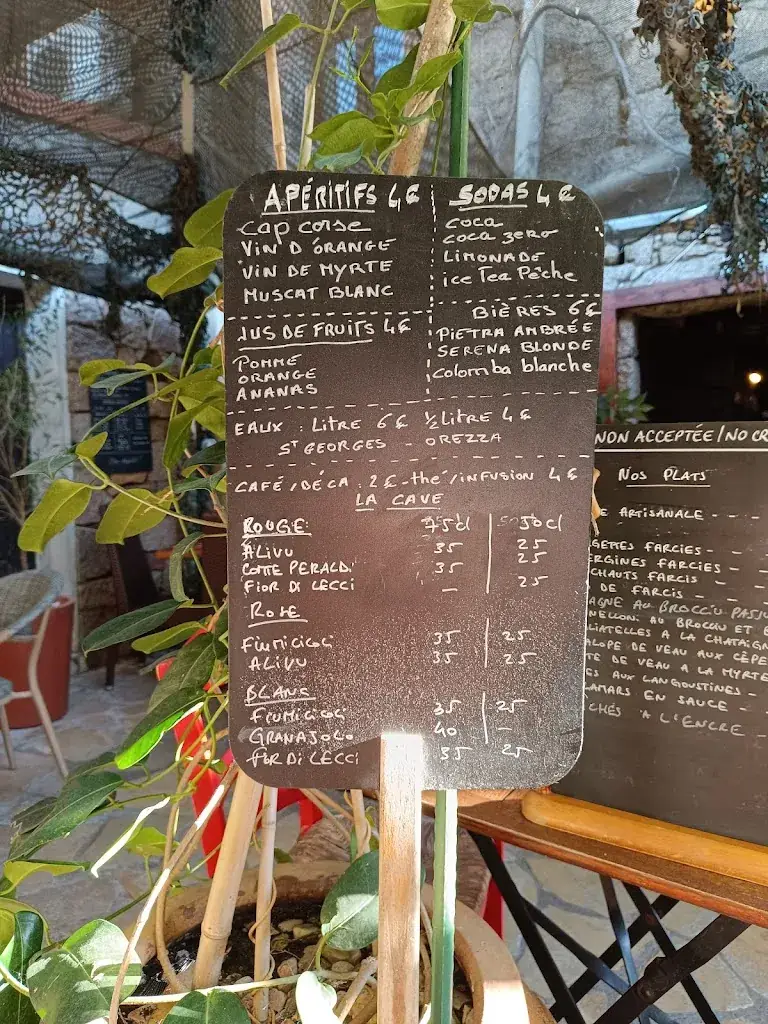 APÉRITIFS 4€
Cap corse
VIN D'ORANGE
VIN DE MYRTE
MUSCAT BLANC
SODAS 4€
COCA
COCA ZERO
LIMONADE
ice Tea Pêche
JUS DE FRUITS 4€
POMME
ORANGE
ANANAS
BIÈRES 6€
PIETRA AMBRÉE
SERENA BLONDE
Colomba blanche
EAUX : LITRE 6€ ½ LITRE 4€
ST GEORGES - OREZZA
CAFÉ/DÉCA : 2€ - thé/infusion 4€
LA CAVE
ROUGE 75cl 50cl
ALIVU 35 25
COTTE PERALDI 35 25
FIOR DI LECCI - 25
ROSE
FIUMICICOLI 35 25
ALIVU 35 25
BLANC
FIUMICICOLI 35 25
GRANAJOLO 40 -
FIOR DI LECCI 35 25
NON ACCEPTÉE / NO CR
NOS PLATS
E ARTISANALE - -
GETTES FARCIES - - -
ERGINES FARCIES - -
CHAUTS FARCIS - -
DE FARCIS - -
AGNE AU BROCCIU
NELLONI AU BROCCIU ET
LIATELLES A LA CHATAIGN
LOPE DE VEAU AUX CÈPE
TE DE VEAU A LA MYRTE
ES AUX LANGOUSTINES -
AMARS EN SAUCE -
CHÉS À L'ENCRE -